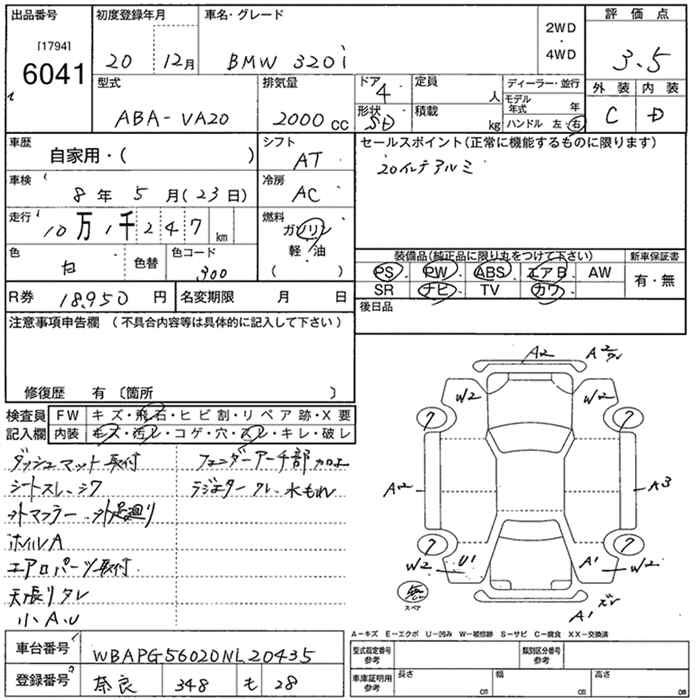 出品番号 初度登録年月 車名・グレード 評価点
[1794]
6041
20 12月 BMW 320i 2WD・4WD 3.5
型式 排気量 ドア 4 定員 人 ディーラー・並行 外装 内装
ABA-VA20 2000cc 形状 SD 積載 kg モデル年式 年 C D
ハンドル 左・右
車歴 自家用・( ) シフト AT セールスポイント(正常に機能するものに限ります)
20インチアルミ
車検 8年5月(23日) 冷房 AC
走行 10万1千247km 燃料 ガソリン
軽・油
( )
色 白 色替 色コード 300
装備品(純正品に限り丸をつけて下さい) 新車保証書
PS PW ABS エアB AW 有・無
SR ナビ TV カワ
R券 18,950円 名変期限 月 日 後日品
注意事項申告欄 (不具合内容等は具体的に記入して下さい)
修復歴 有〔箇所 〕
検査員 FW キズ・飛石・ヒビ割・リペア跡・X要
記入欄 内装 キズ・汚レ・コゲ・穴・スレ・キレ・破レ
ダッシュマット取付 フェンダーアーチ部加工
シートスレ、シワ ラジエター 水もれ
外マフラー、外足廻り
ホイルA
エアロパーツ取付
天張りタレ
小A.U
A2 A2
W2 W2
A2 A3
W2 U1 A1 W2
スペア
A1
A-キズ E-エクボ U-凹み W-補修跡 S-サビ C-腐食 XX-交換済
車台番号 WBAPG56020NL20435
型式指定番号 参考 類別区分番号 参考
登録番号 奈良 348 も 28
車庫証明用 参考 長さ cm 幅 cm 高さ cm